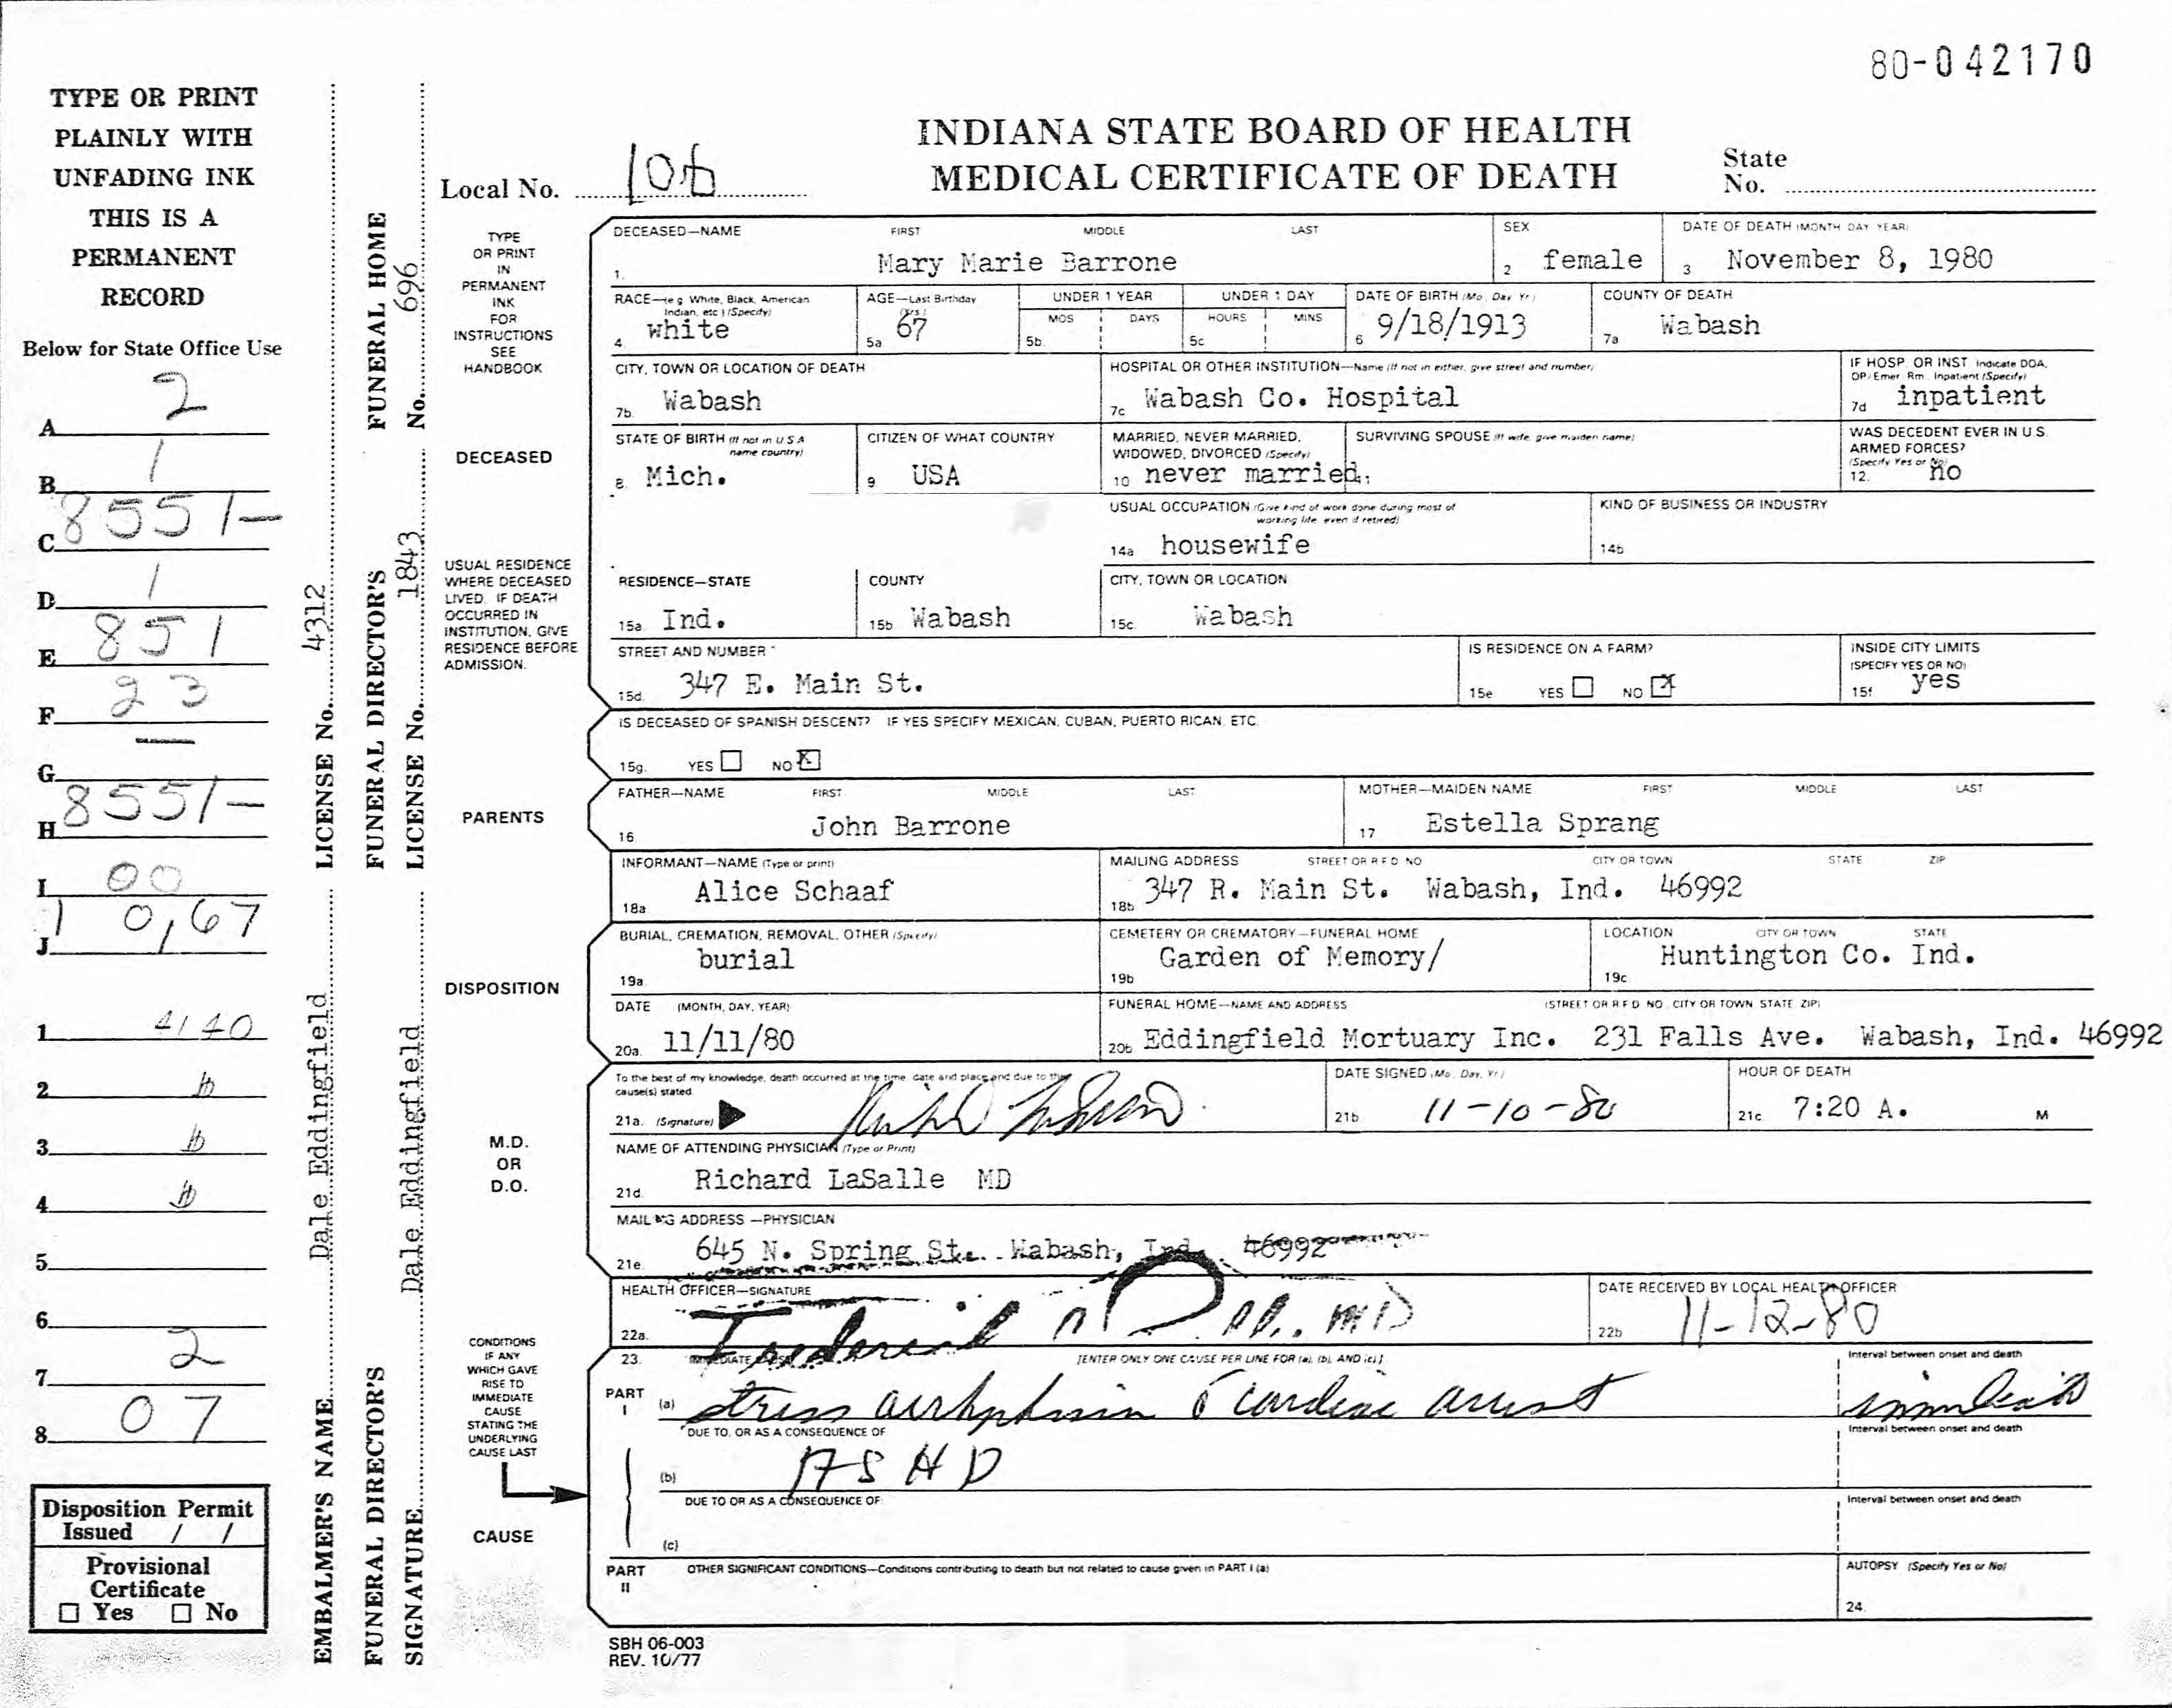 80-042170
TYPE OR PRINT
PLAINLY WITH
UNFADING INK
THIS IS A
PERMANENT
RECORD
Below for State Office Use
A 2
B 1
C 8551-
D 1
E 851
F 23
G —
H 8551-
I 00
J 1 0,67
1 4140
2
3
4
5
6
7 2
8 07
Disposition Permit
Issued / /
Provisional
Certificate
☐ Yes ☐ No
EMBALMER'S NAME Dale Eddingfield LICENSE No. 4312
FUNERAL DIRECTOR'S FUNERAL DIRECTOR'S FUNERAL HOME
SIGNATURE Dale Eddingfield LICENSE No. 1843 No. 696
INDIANA STATE BOARD OF HEALTH
MEDICAL CERTIFICATE OF DEATH
Local No. 106
State
No.
TYPE
OR PRINT
IN
PERMANENT
INK
FOR
INSTRUCTIONS
SEE
HANDBOOK
DECEASED—NAME FIRST MIDDLE LAST
1. Mary Marie Barrone
SEX
2 female
DATE OF DEATH (MONTH DAY YEAR)
3 November 8, 1980
RACE—(e g White, Black, American
Indian, etc ) (Specify)
4. white
AGE—Last Birthday
(Yrs.)
5a 67
UNDER 1 YEAR
MOS DAYS
5b.
UNDER 1 DAY
HOURS MINS
5c
DATE OF BIRTH (Mo, Day, Yr)
6 9/18/1913
COUNTY OF DEATH
7a Wabash
CITY, TOWN OR LOCATION OF DEATH
7b. Wabash
HOSPITAL OR OTHER INSTITUTION—Name (If not in either, give street and number)
7c Wabash Co. Hospital
IF HOSP. OR INST Indicate DOA,
OP/Emer Rm, Inpatient (Specify)
7d inpatient
DECEASED
STATE OF BIRTH (If not in U S A
name country)
8. Mich.
CITIZEN OF WHAT COUNTRY
9 USA
MARRIED, NEVER MARRIED,
WIDOWED, DIVORCED (Specify)
10 never married
SURVIVING SPOUSE (If wife, give maiden name)
WAS DECEDENT EVER IN U S.
ARMED FORCES?
(Specify Yes or No)
12. no
USUAL OCCUPATION (Give kind of work done during most of
working life, even if retired)
14a housewife
KIND OF BUSINESS OR INDUSTRY
14b
USUAL RESIDENCE
WHERE DECEASED
LIVED. IF DEATH
OCCURRED IN
INSTITUTION, GIVE
RESIDENCE BEFORE
ADMISSION.
RESIDENCE—STATE
15a. Ind.
COUNTY
15b Wabash
CITY, TOWN OR LOCATION
15c. Wabash
STREET AND NUMBER
15d. 347 E. Main St.
IS RESIDENCE ON A FARM?
15e YES ☐ NO ☒
INSIDE CITY LIMITS
(SPECIFY YES OR NO)
15f yes
IS DECEASED OF SPANISH DESCENT? IF YES SPECIFY MEXICAN, CUBAN, PUERTO RICAN, ETC.
15g. YES ☐ NO ☒
PARENTS
FATHER—NAME FIRST MIDDLE LAST
16 John Barrone
MOTHER—MAIDEN NAME FIRST MIDDLE LAST
17 Estella Sprang
INFORMANT—NAME (Type or print)
18a Alice Schaaf
MAILING ADDRESS STREET OR R F D NO CITY OR TOWN STATE ZIP
18b 347 R. Main St. Wabash, Ind. 46992
DISPOSITION
BURIAL, CREMATION, REMOVAL, OTHER (Specify)
19a burial
CEMETERY OR CREMATORY—FUNERAL HOME
19b Garden of Memory/
LOCATION CITY OR TOWN STATE
19c Huntington Co. Ind.
DATE (MONTH, DAY, YEAR)
20a. 11/11/80
FUNERAL HOME—NAME AND ADDRESS (STREET OR R F D NO, CITY OR TOWN STATE ZIP)
20b Eddingfield Mortuary Inc. 231 Falls Ave. Wabash, Ind. 46992
M.D.
OR
D.O.
To the best of my knowledge, death occurred at the time, date and place and due to the
cause(s) stated
21a. (Signature)
DATE SIGNED (Mo, Day, Yr)
21b 11-10-80
HOUR OF DEATH
21c 7:20 A. M
NAME OF ATTENDING PHYSICIAN (Type or Print)
21d. Richard LaSalle MD
MAILING ADDRESS—PHYSICIAN
21e. 645 N. Spring St. Wabash, Ind. 46992
HEALTH OFFICER—SIGNATURE
22a. Frederick MD
DATE RECEIVED BY LOCAL HEALTH OFFICER
22b 11-12-80
CONDITIONS
IF ANY
WHICH GAVE
RISE TO
IMMEDIATE
CAUSE
STATING THE
UNDERLYING
CAUSE LAST
CAUSE
23. IMMEDIATE CAUSE [ENTER ONLY ONE CAUSE PER LINE FOR (a), (b), AND (c)]
PART
I
(a) stress arrhythmia c̄ cardiac arrest
Interval between onset and death
immediate
DUE TO, OR AS A CONSEQUENCE OF
(b) ASHD
Interval between onset and death
DUE TO OR AS A CONSEQUENCE OF:
(c)
Interval between onset and death
PART
II
OTHER SIGNIFICANT CONDITIONS—Conditions contributing to death but not related to cause given in PART I (a)
AUTOPSY (Specify Yes or No)
24.
SBH 06-003
REV. 10/77